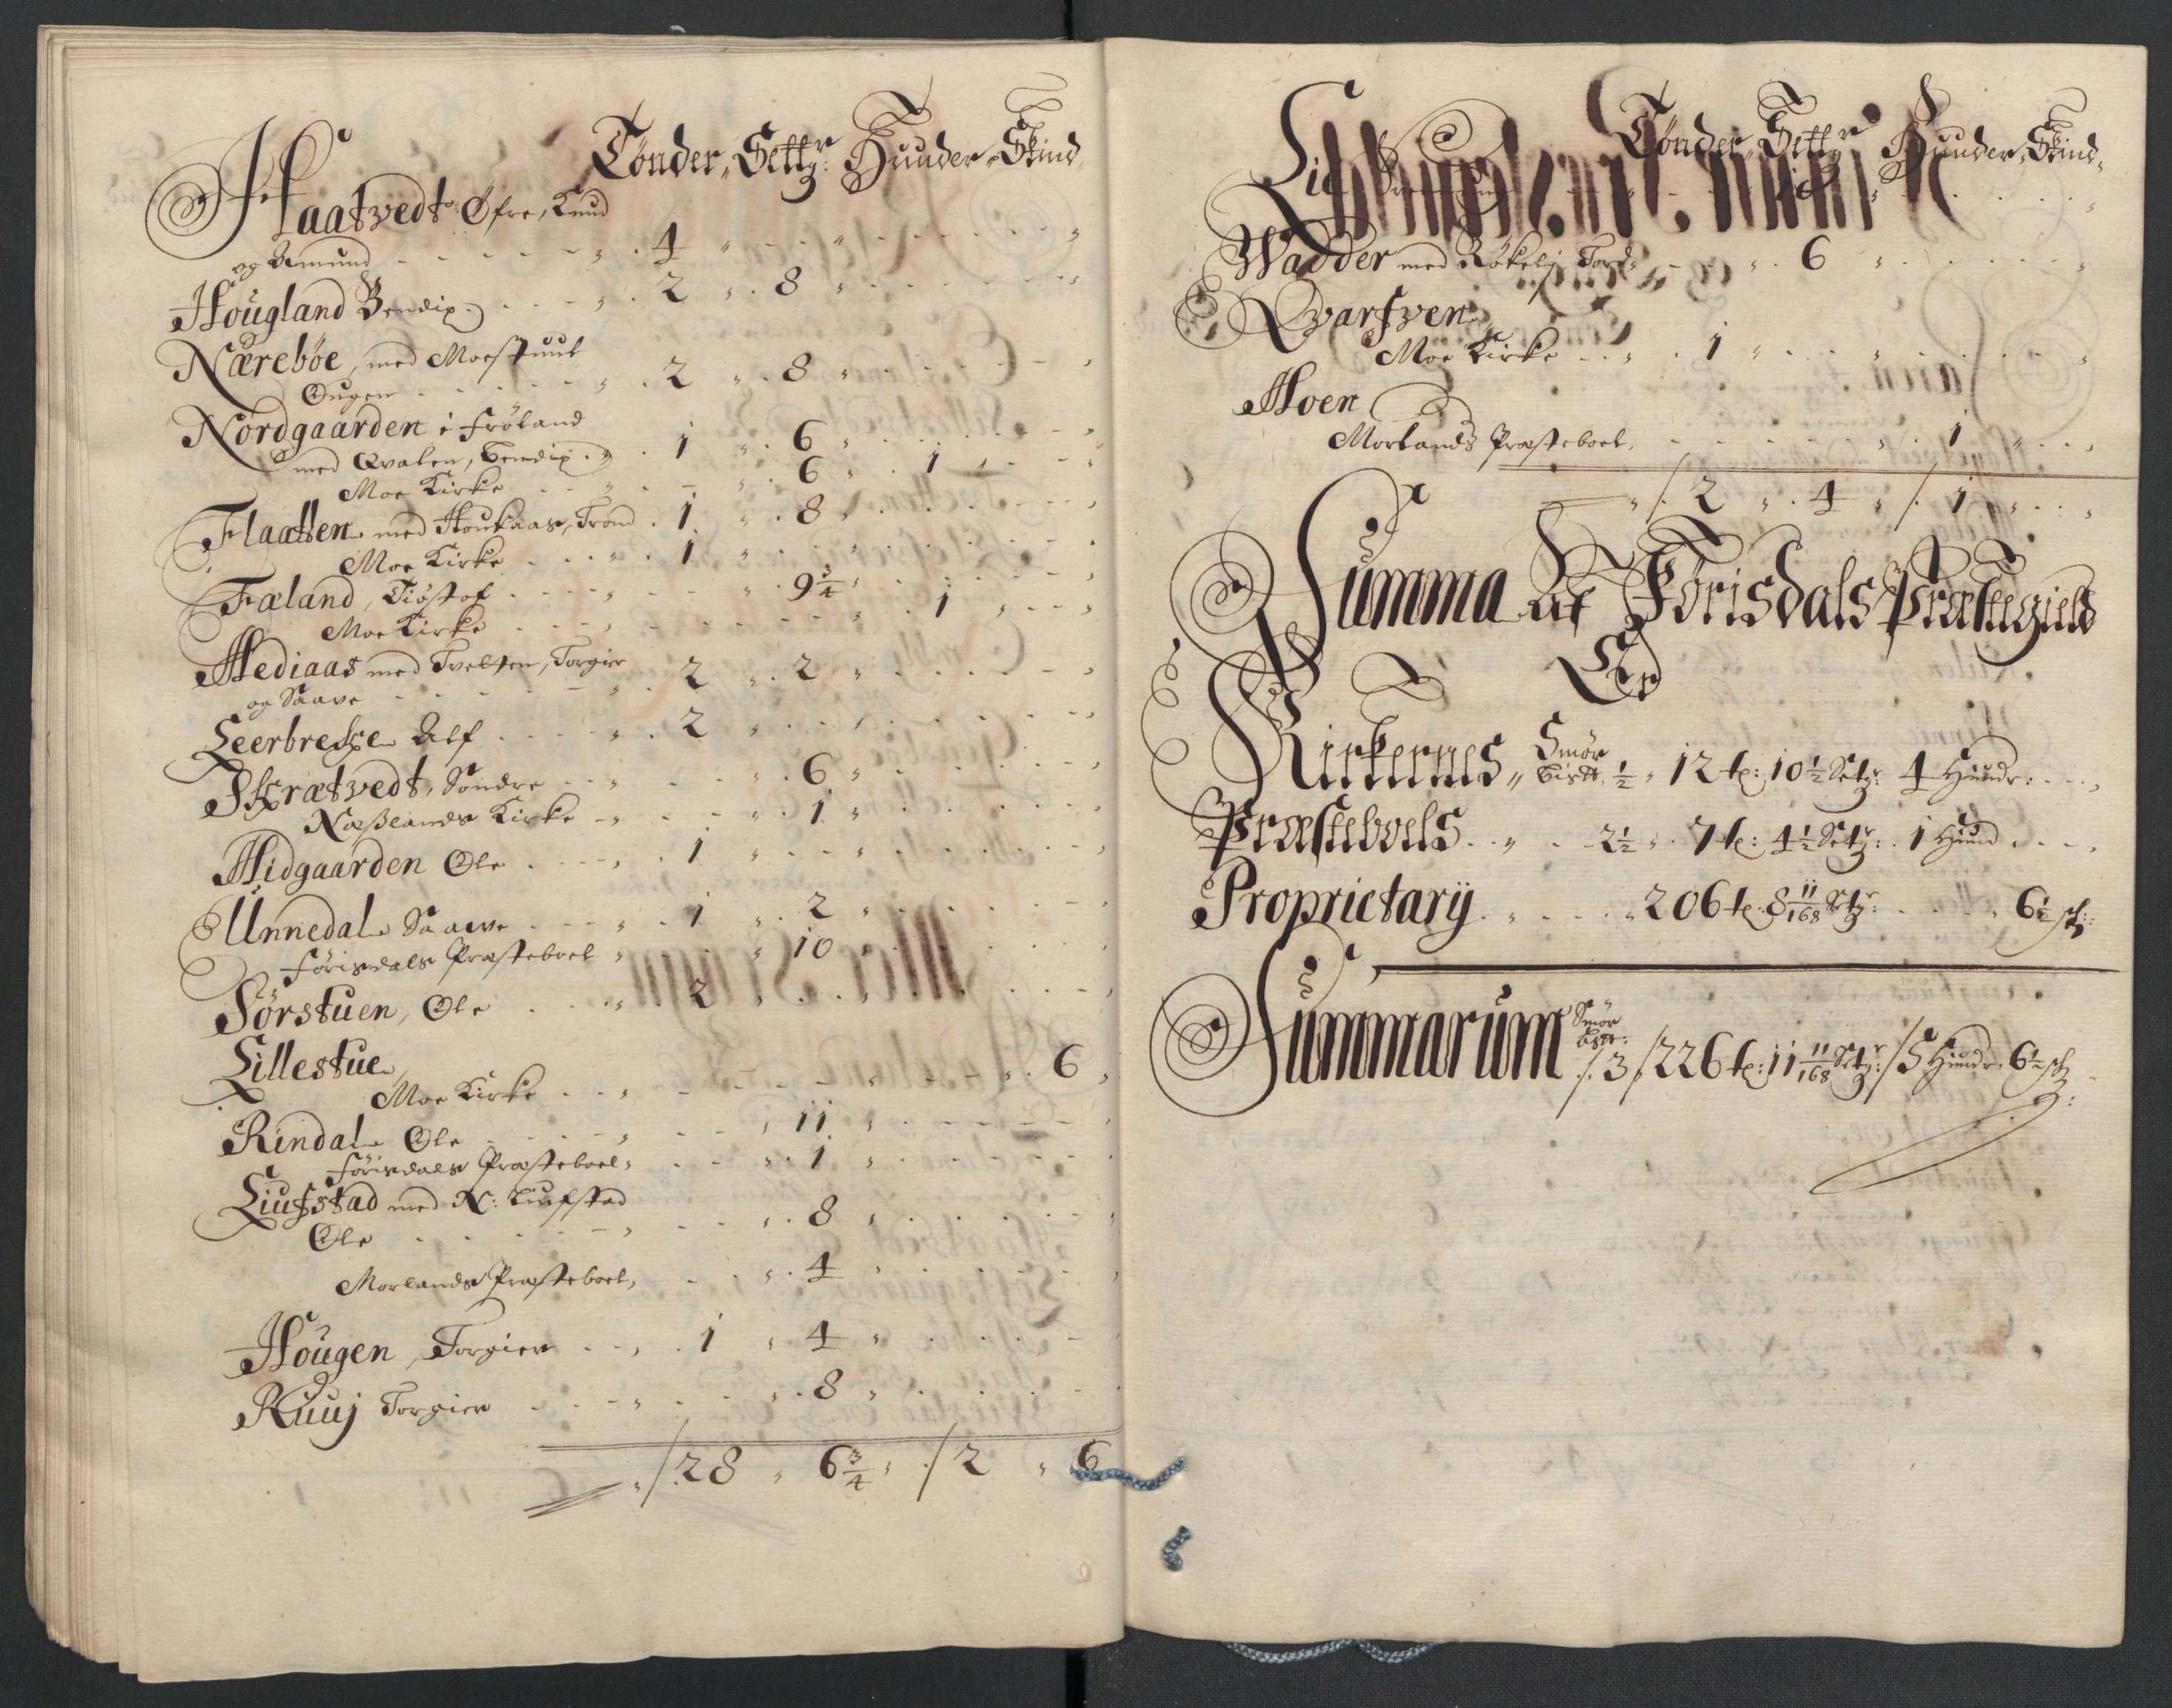 Tønder, Settgr: Hunder, Skind
Haatvedt Øfre, Knud
og Amund - - - 4
Hougland Bendix - - - 2 8
Nærebøe, med Moestuul
Ougen - - - 2 8
Nordgaarden i Frøland
med Qvalen, Bendix - 1 6
Moe Kirke - - - 6 1
Flaatten med Houkaas, Trond 1 8
Moe Kirke - - - 1
Fæland, Tiøstof - - - 9 3/4
Moe Kirke - - - 1
Hediaas med Tvelten, Torgier
og Saave - - - 2 2
Leerbrekke Alf - - - 2
Skrætvedt, Søndre - - - 6
Næslands Kirke - - - 1
Midgaarden Ole - - - 1
Unnedal Saave - - - 1 2
Førisdals Præsteboel 10
Sørstuen, Ole - - - 2
Lillestue
Moe Kirke - - - 6
Rindal Ole - - - 11
Førisdals Præsteboel, - - 1
Liufstad med N: Liufstad
Ole - - - 8
Morlands Præsteboel, - - 4
Hougen, Torgier - - 1 4
Ruuj Torgier - - - 8
/28 6 3/4 /2 6
Tønder, Settgr Hunder, Skind
Wadder med Røkels Tord - - 6
Qvarfven
Moe Kirke - - 1
Hoen
Morlands Præsteboel, - - - 1
/2 4 /1
Summa Af Førisdals Præstegield
Er
Kirkernes, Smør Bistk. 1/2 12 tr: 10 1/2 Setgr: 4 Hundr:
Præsteboels - - 2 1/2 7 tr: 4 1/2 Setgr: 1 Hund
Proprietarij - - - 206 tr 8 11/168 Setgr: - - 6 1/2 sk:
Summarum Smør bstk: /3 /226 tr: 11 11/168 Setgr: /5 Hundr, 6 1/2 sk: